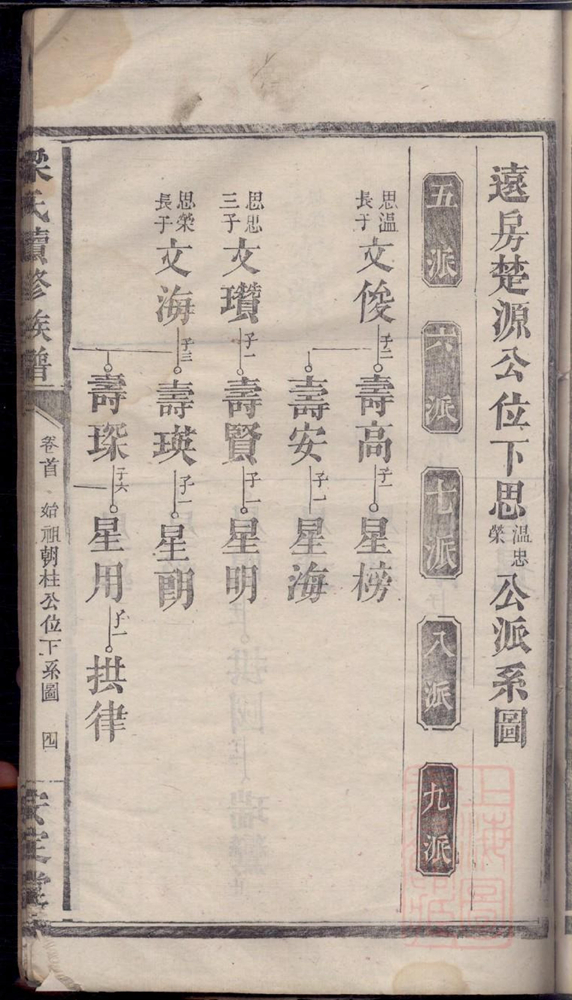 遠房楚源公位下思溫忠榮公派系圖
五派 六派 七派 八派 九派
思溫長子 文俊 子二 壽高 子一 星榜
壽安 子一 星海
思忠三子 文瓚 子一 壽賢 子一 星明
思榮長子 文海 子三 壽瑛 子一 星朗
壽琛 子六 星用 子一 拱律
梁氏續修族譜
卷首 始祖朝柱公位下系圖 四
安定堂